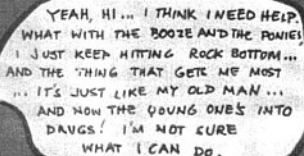 YEAH, HI... I THINK I NEED HELP
WHAT WITH THE BOOZE AND THE PONIES
I JUST KEEP HITTING ROCK BOTTOM...
AND THE THING THAT GETS ME MOST
... IT'S JUST LIKE MY OLD MAN...
AND NOW THE YOUNG ONE'S INTO
DRUGS! I'M NOT SURE
WHAT I CAN DO.